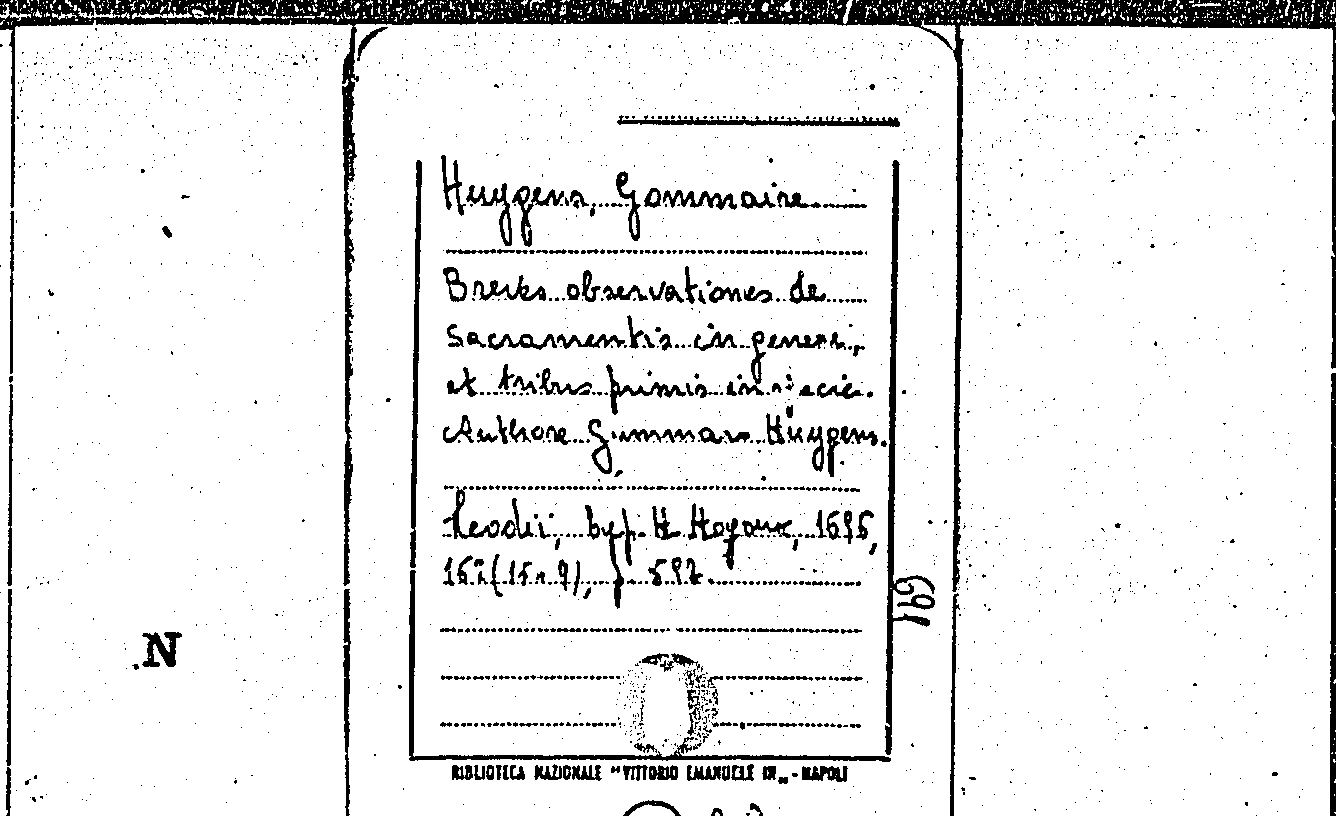 Huygens, Gommaire
Breves observationes de
Sacramentis in genere,
et tribus primis in specie.
Authore Gummaro Huygens.
Leodii, typ. H. Hoyoux, 1696,
16º (15 x 9), p. 592
691
N
BIBLIOTECA NAZIONALE "VITTORIO EMANUELE III„ - NAPOLI